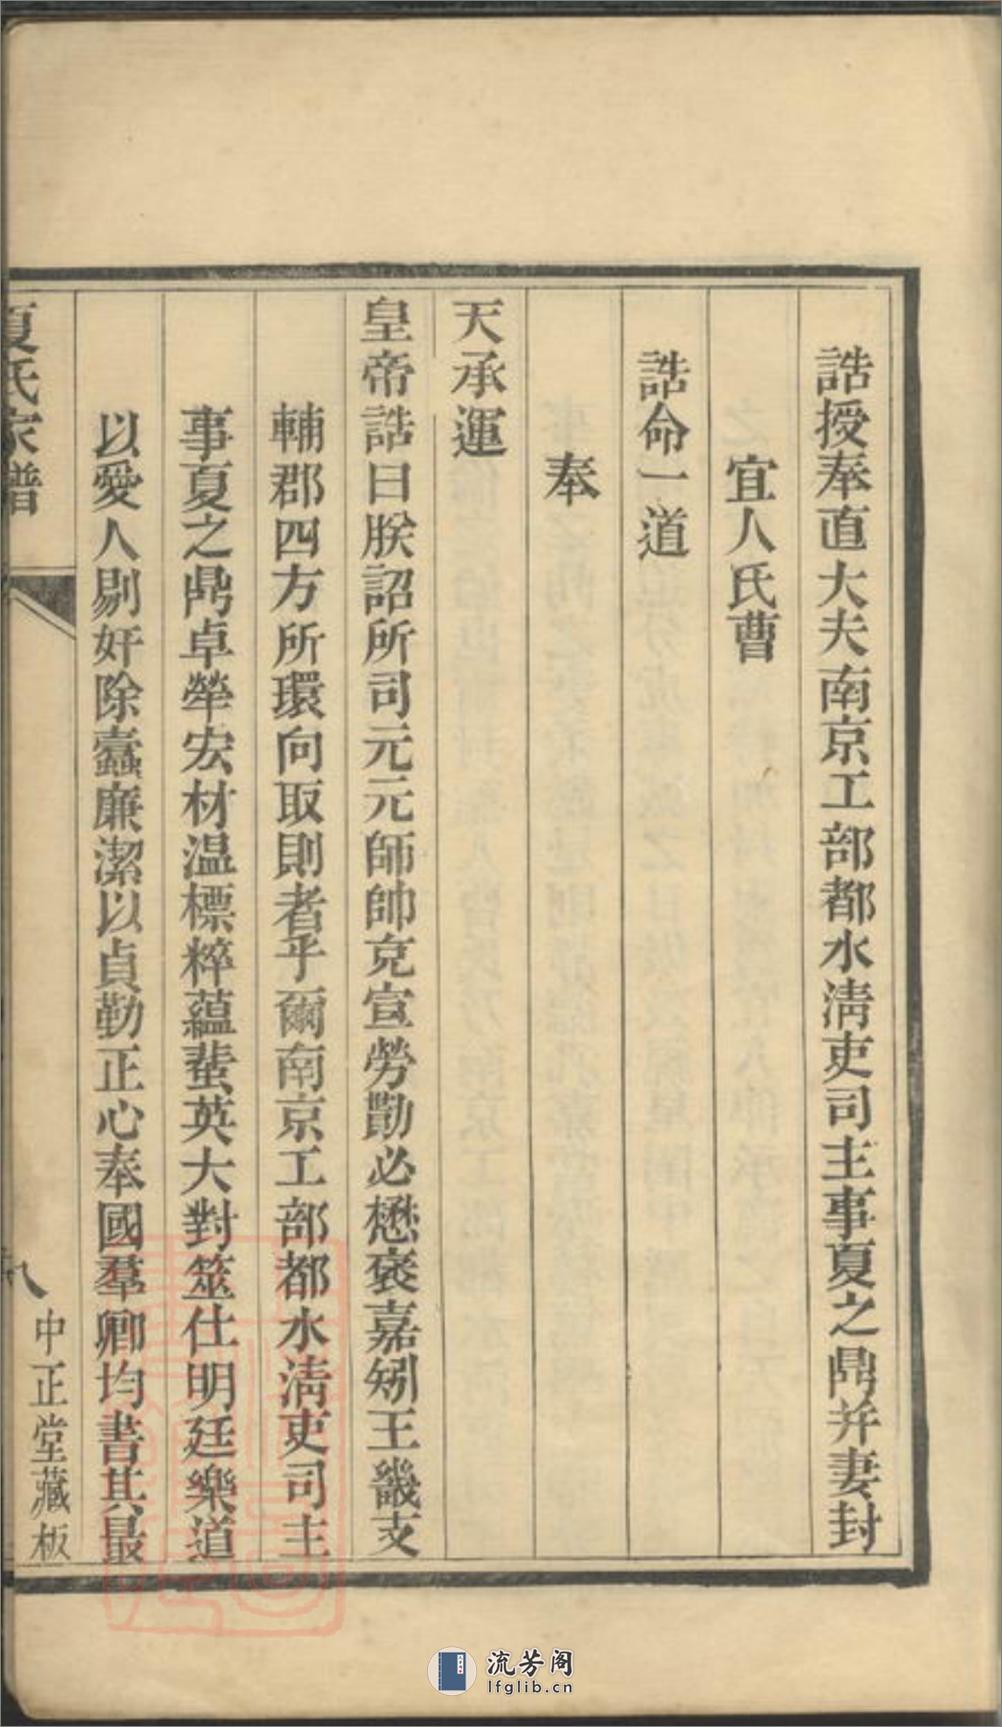 誥授奉直大夫南京工部都水清吏司主事夏之鼎并妻封
宜人氏曹
誥命一道
奉
天承運
皇帝誥曰朕詔所司元元師帥克宣勞勩必懋褒嘉矧王畿支
輔郡四方所環向取則者乎爾南京工部都水清吏司主
事夏之鼎卓犖宏材温標粹蘊蜚英大對筮仕明廷樂道
以愛人剔奸除蠹廉潔以貞勒正心奉國羣卿均書其最
夏氏家譜
八
中正堂藏板
流芳阁
lfglib.cn